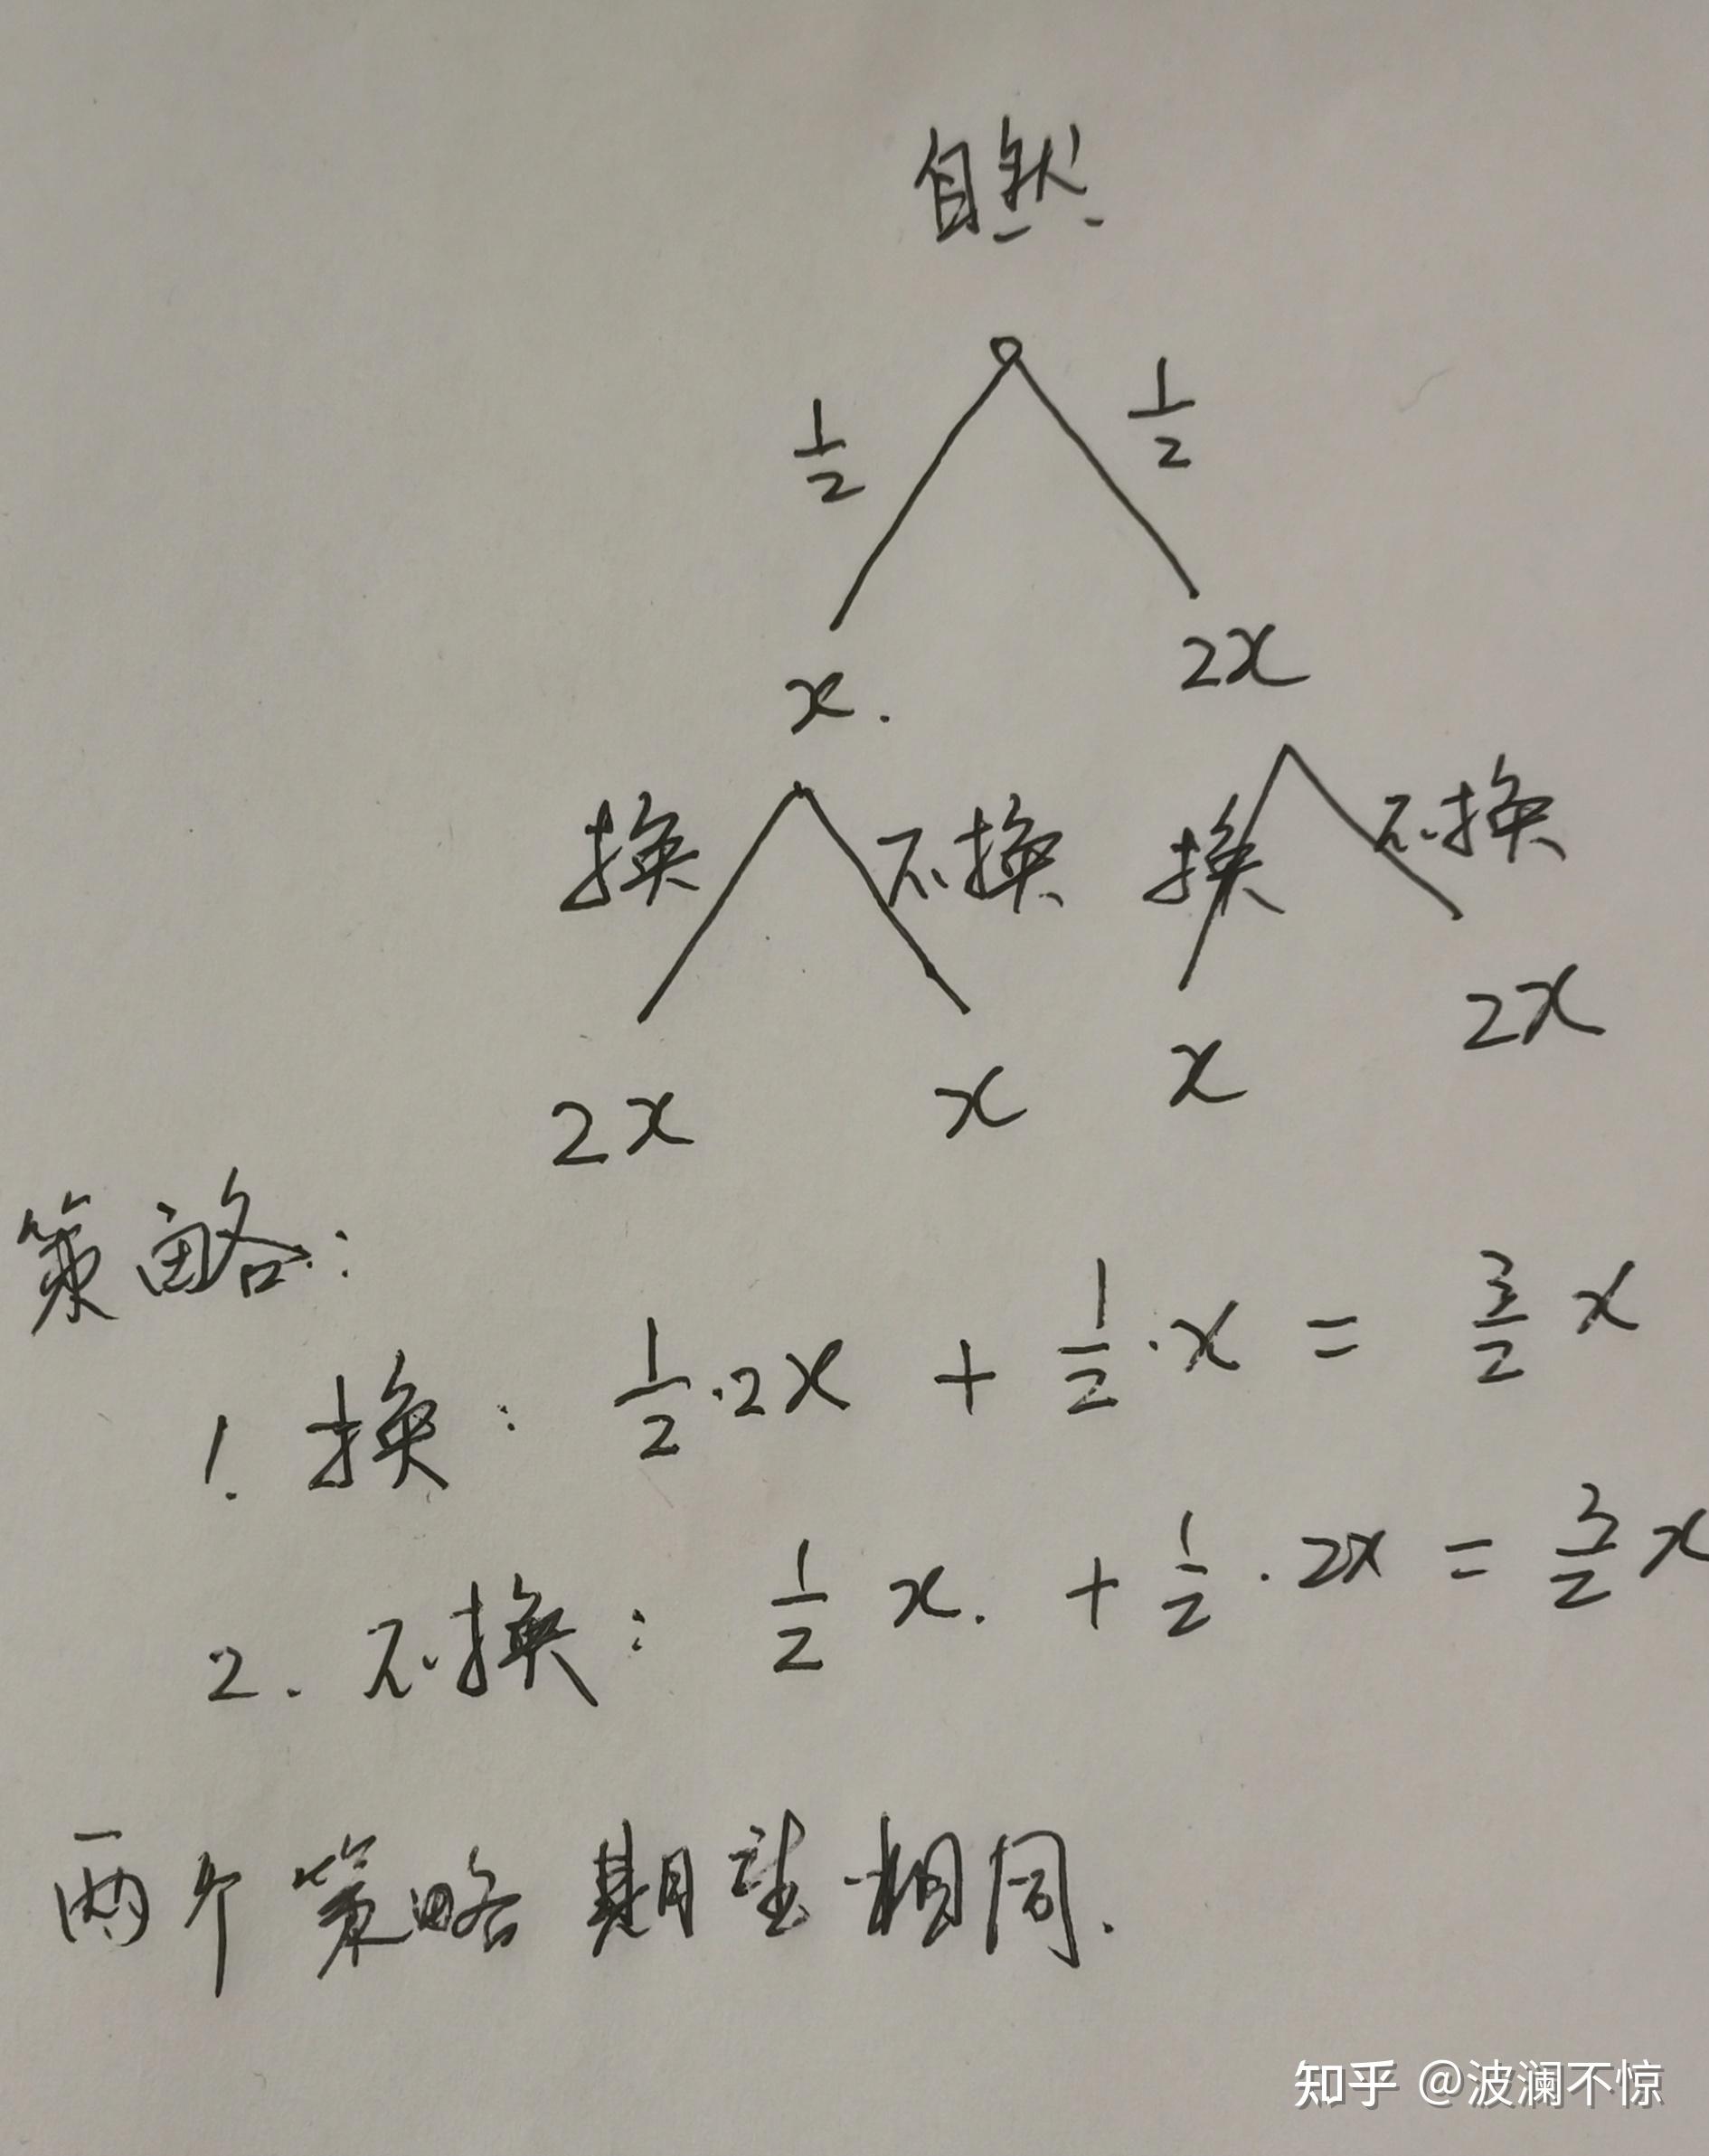 自然
1/2 1/2
x. 2x
换 不换 换 不换
2x x x 2x
策略:
1. 换: 1/2·2x + 1/2·x = 3/2 x
2. 不换: 1/2 x. + 1/2·2x = 3/2 x
两个策略期望相同.
知乎 @波澜不惊